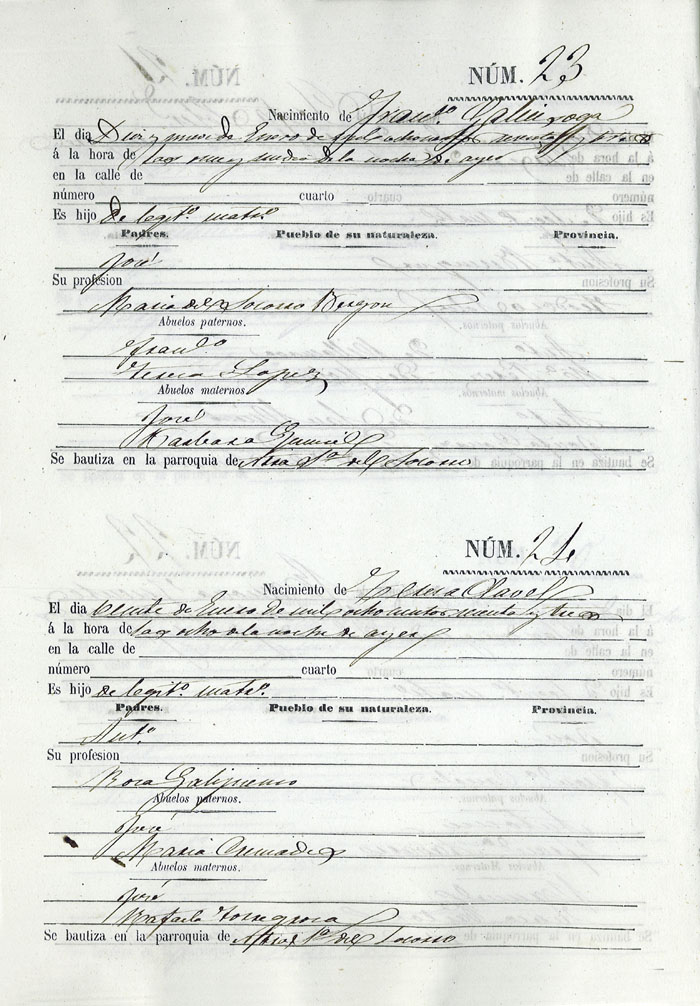 NÚM. 23
Nacimiento de Fran.co
El dia Diez y nueve de Enero de mil ochocientos y tres
á la hora de las once y media de la noche de ayer
en la calle de
número cuarto
Es hijo de legit.o matr.o
Padres. Pueblo de su naturaleza. Provincia.
José
Su profesion
Maria del Socorro Aragon
Abuelos paternos.
Fran.co
Teresa Lopez
Abuelos maternos.
José
Barbara
Se bautiza en la parroquia de Ntra S.a del Socorro
NÚM. 24
Nacimiento de Clavel
El dia Veinte de Enero de mil ochocientos y tres
á la hora de las ocho de la noche de ayer
en la calle de
número cuarto
Es hijo de legit.o matr.o
Padres. Pueblo de su naturaleza. Provincia.
Ant.o
Su profesion
Rosa Galipienso
Abuelos paternos.
José
Maria Cremades
Abuelos maternos.
José
Rafaela Torregrosa
Se bautiza en la parroquia de Ntra S.a del Socorro